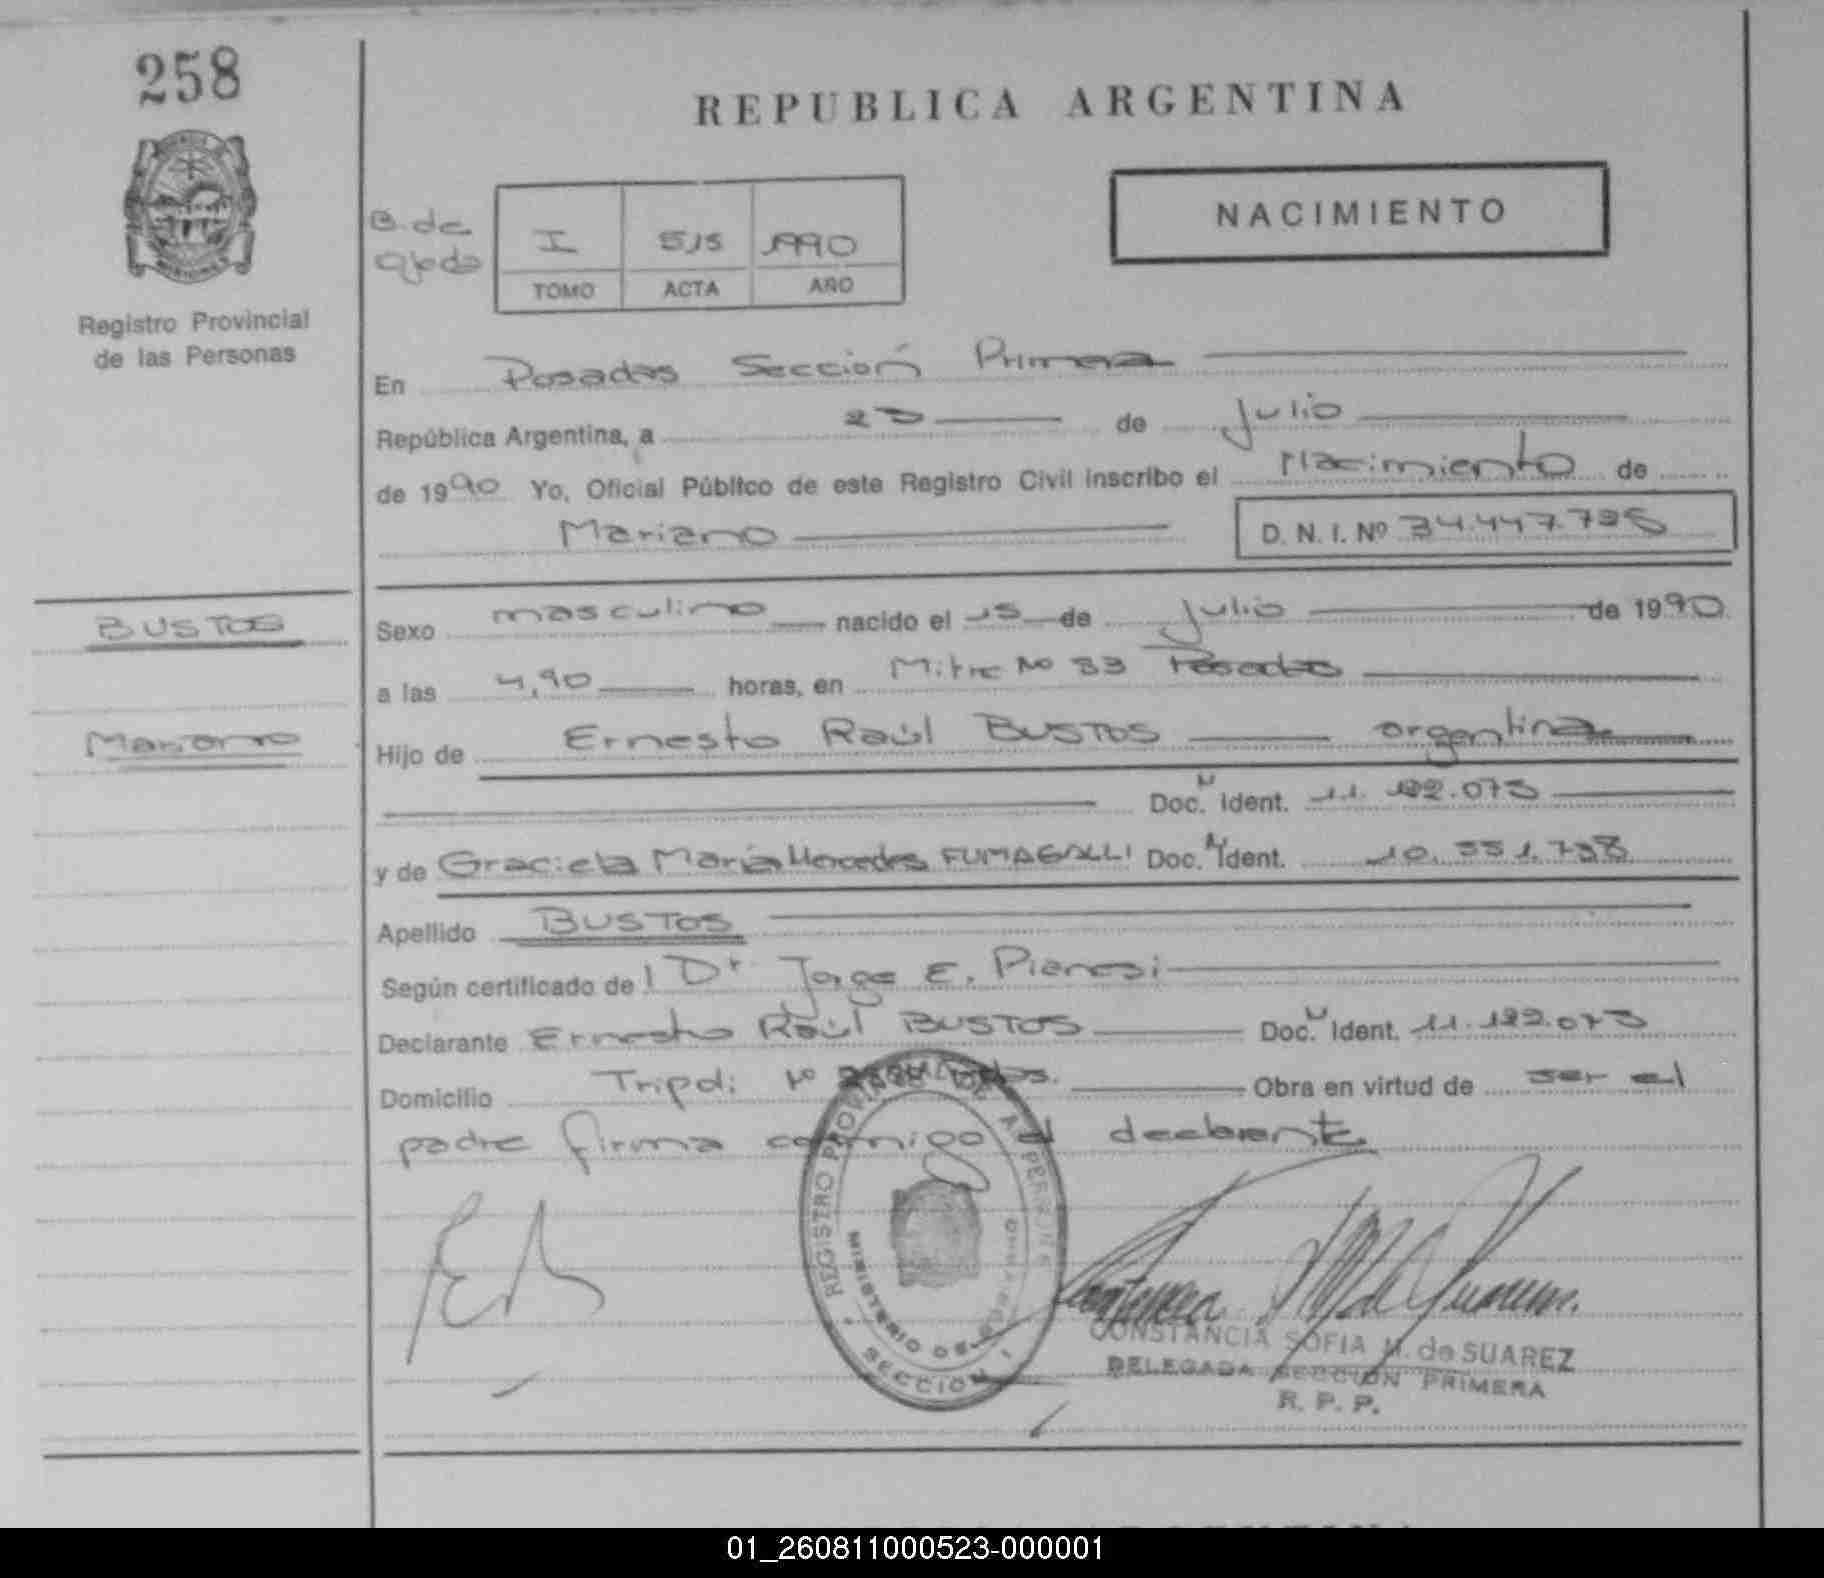 258
REPUBLICA ARGENTINA
NACIMIENTO
B. de
Ojeda
I 515 1990
TOMO ACTA AÑO
Registro Provincial
de las Personas
En Posadas Sección Primera
República Argentina, a 20 de Julio
de 1990 Yo, Oficial Público de este Registro Civil inscribo el Nacimiento de
Mariano D. N. I. Nº 34.447.735
BUSTOS
Sexo masculino nacido el 15 de Julio de 1990
a las 4,40 horas, en Mitre Nº 33 Posadas
Mariano
Hijo de Ernesto Raúl BUSTOS argentina
Doc. Ident. 11.122.073
y de Graciela María Mercedes FUMAGALLI Doc. Ident. 10.351.738
Apellido BUSTOS
Según certificado de l Dr Jorge E.
Declarante Ernesto Raúl BUSTOS Doc. Ident. 11.122.073
Domicilio Nº Obra en virtud de ser el
padre firma conmigo el declarante
REGISTRO PROVINCIAL DE LAS PERSONAS
MINISTERIO DE GOBIERNO
SECCION I
CONSTANCIA SOFIA M. de SUAREZ
DELEGADA SECCION PRIMERA
R. P. P.
01_260811000523-000001